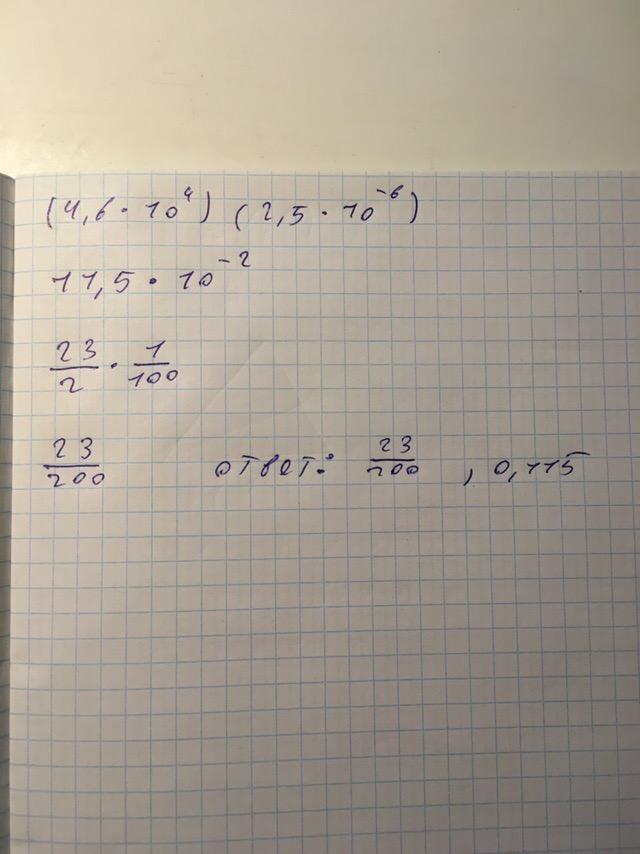 (4,6 · 10⁴) (2,5 · 10⁻⁶)
11,5 · 10⁻²
23/2 · 1/100
23/200 ответ: 23/200 , 0,115